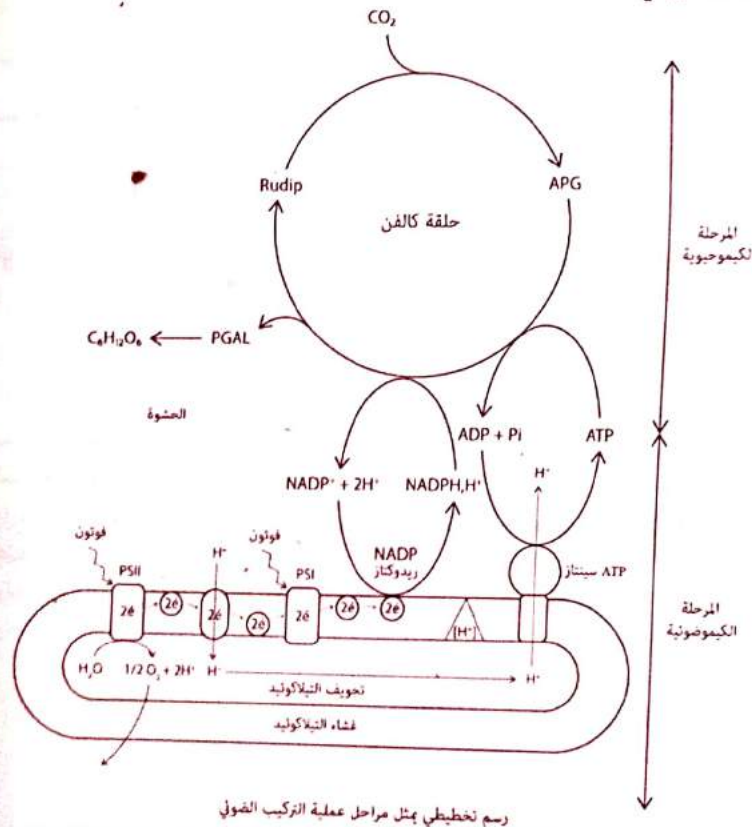 CO₂
Rudip
APG
حلقة كالفن
المرحلة
لكيموحيوية
C₆H₁₂O₆
PGAL
الحشوة
ADP + Pi
ATP
H⁺
NADP⁺ + 2H⁺
NADPH,H⁺
فوتون
فوتون
H⁺
NADP
ريدوكتاز
PSII
PSI
ATP سينتاز
المرحلة
الكيموضوئية
2é
2é
2é
2é
2é
2é
2é
[H⁺]
H₂O
1/2 O₂ + 2H⁺
H⁺
H⁺
تجويف التيلاكوئيد
غشاء التيلاكوئيد
رسم تخطيطي يمثل مراحل عملية التركيب الضوئي